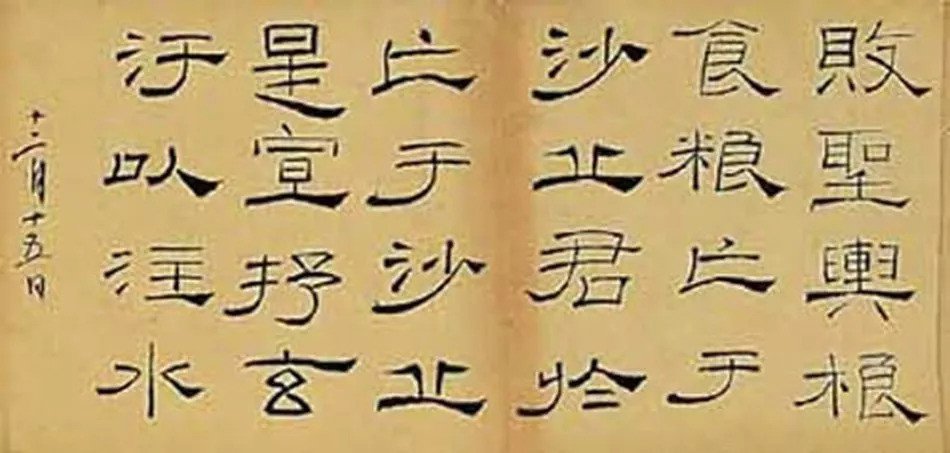 敗聖輿根
食粮亡于
沙丘君於
亡于沙丘
是宣抒玄
汙以注水
十二月十五日